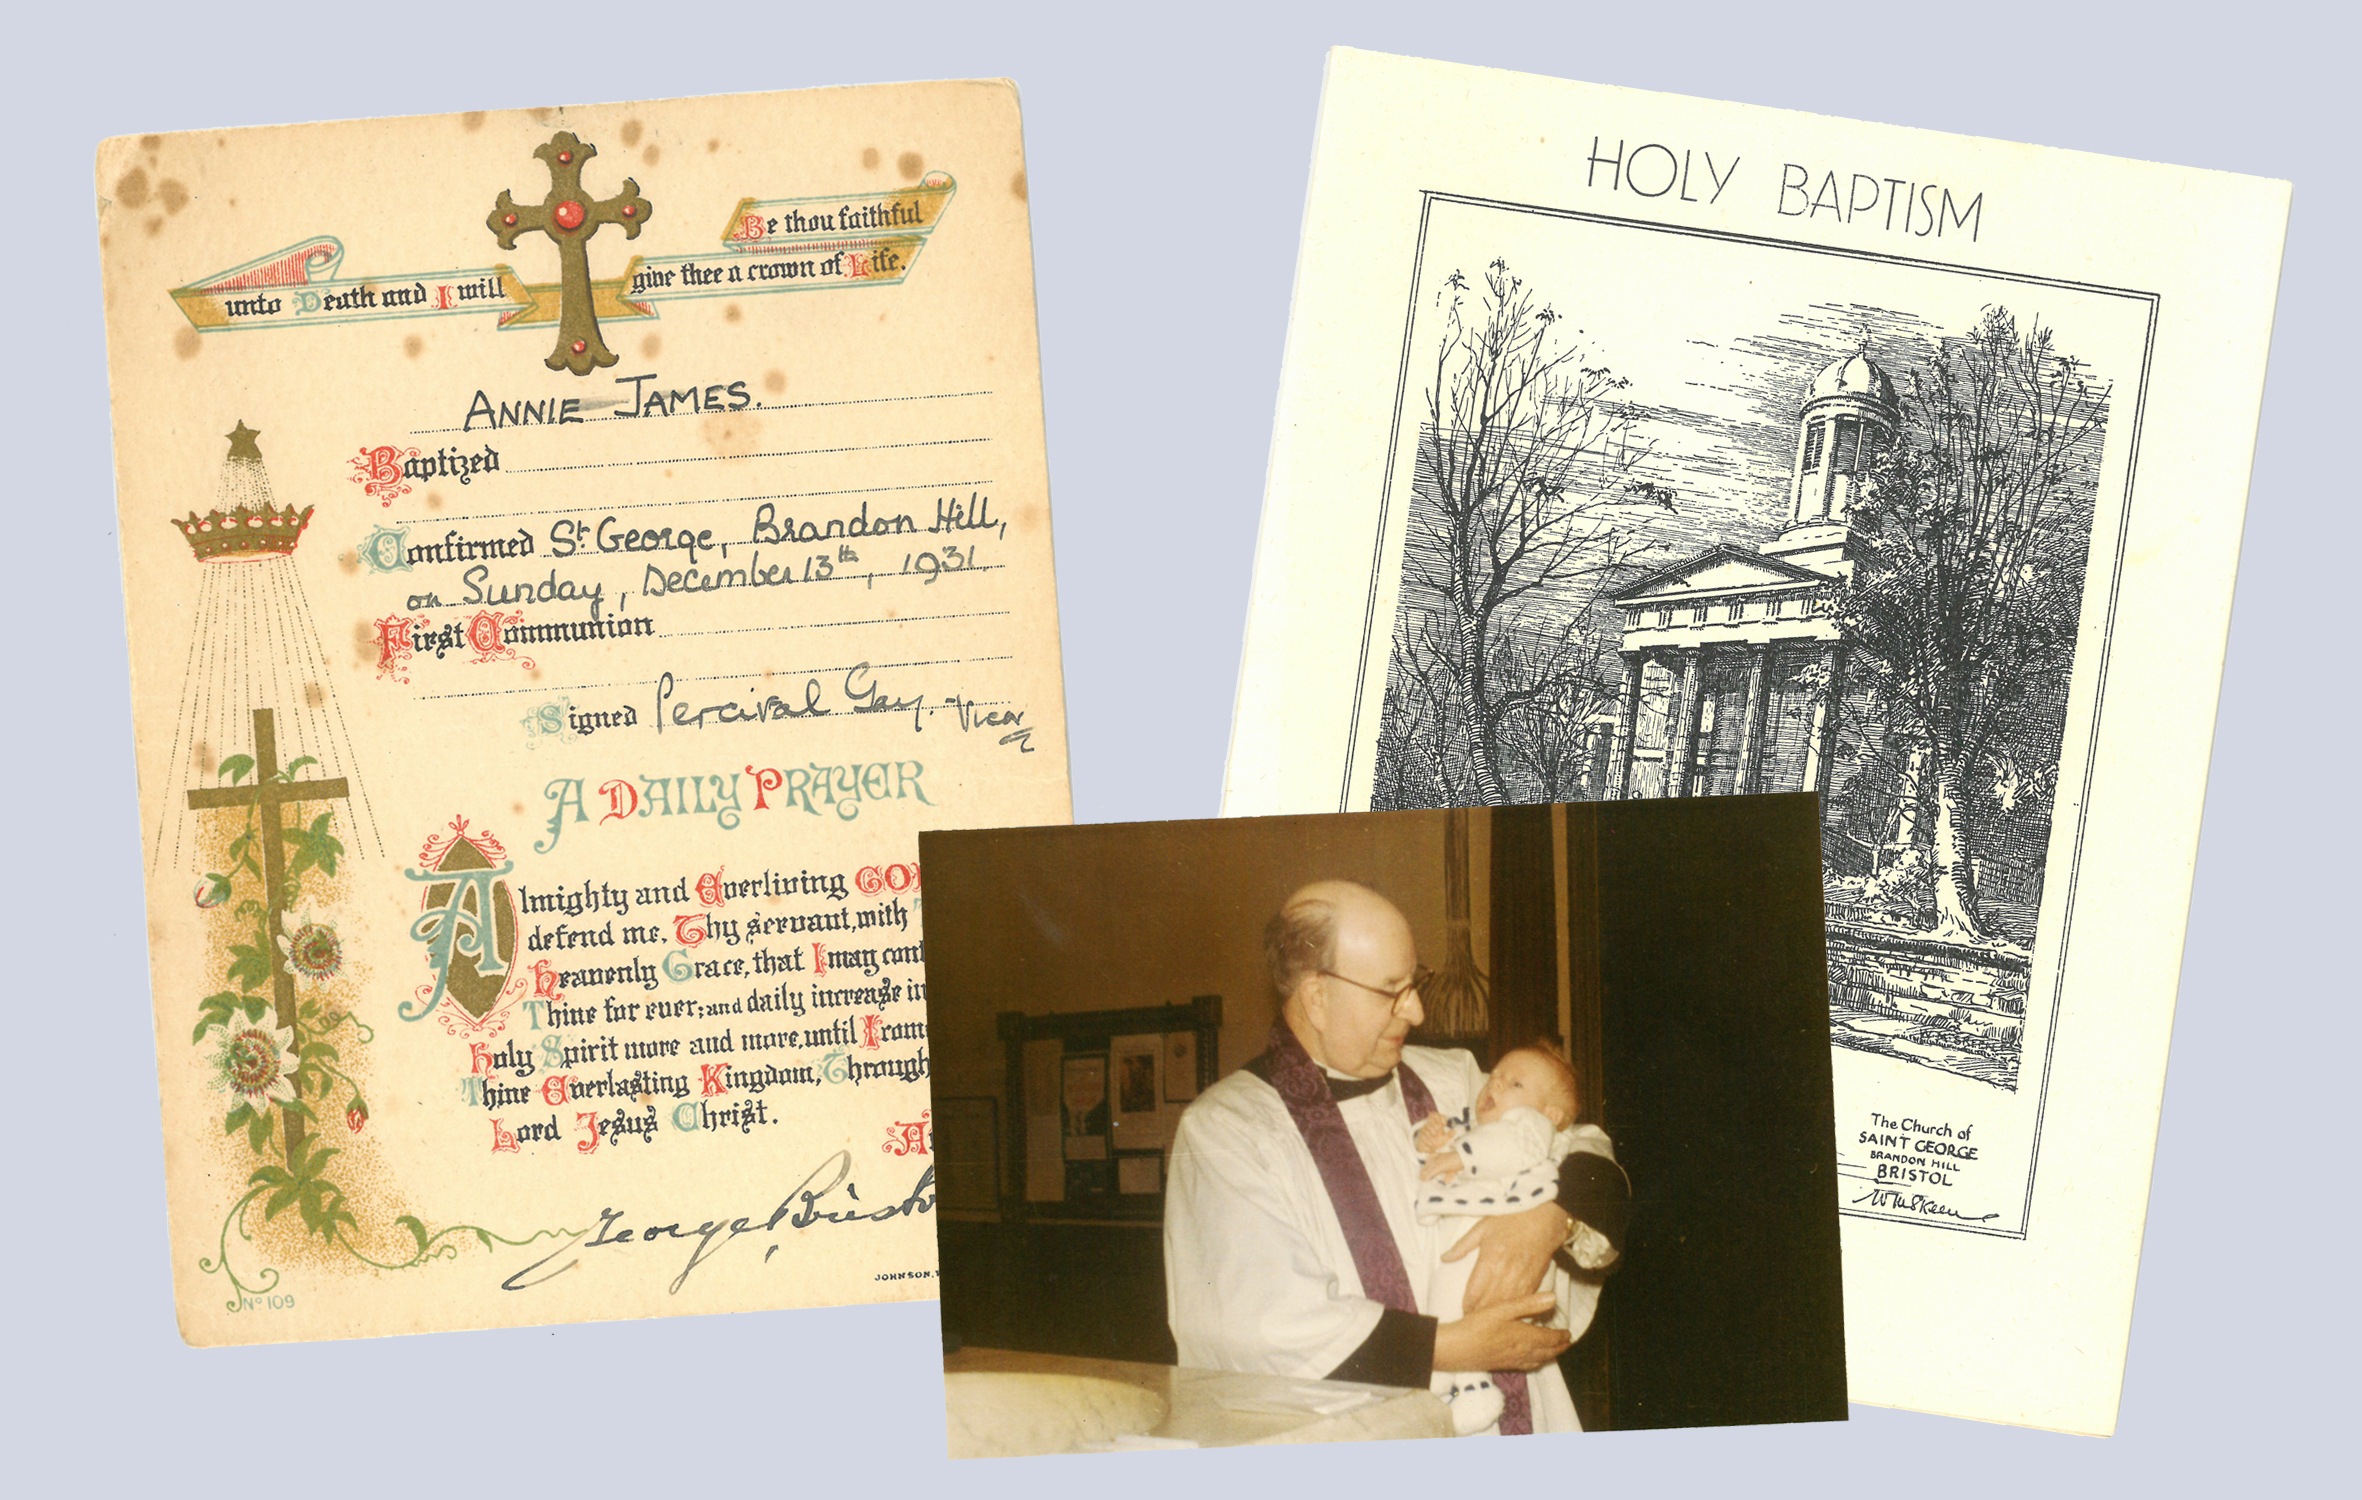 Be thou faithful
unto Death and I will give thee a crown of Life.
ANNIE JAMES.
Baptized
Confirmed St. George, Brandon Hill,
on Sunday, December 13th, 1931.
First Communion
Signed Percival Gay. Vicar
A DAILY PRAYER
Almighty and Everliving GO
defend me, Thy servant, with
Heavenly Grace, that I may cont
Thine for ever; and daily increase in
Holy Spirit more and more, until I come
Thine Everlasting Kingdom, Through
Lord Jesus Christ.
George Bristo
JOHNSON,
No 109
HOLY BAPTISM
The Church of
SAINT GEORGE
BRANDON HILL
BRISTOL